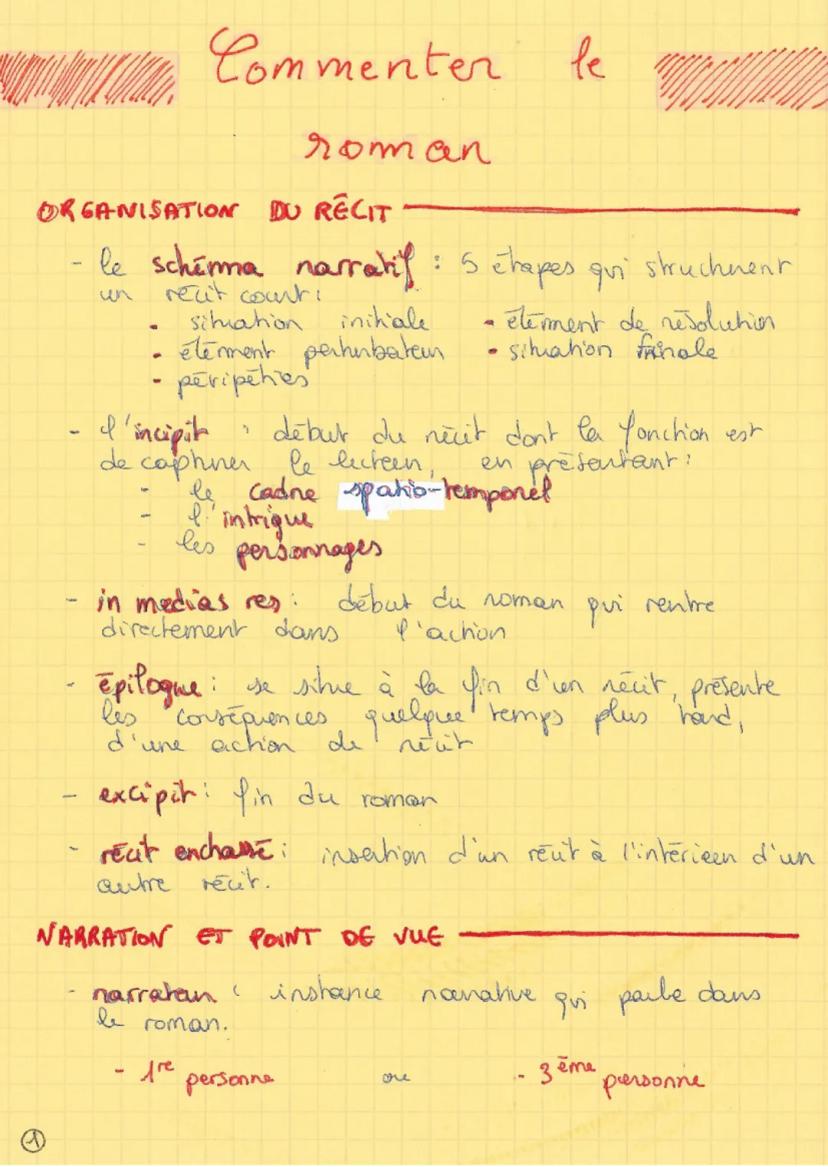 Commenter le
roman
ORGANISATION DU RÉCIT
- le schéma narratif : 5 étapes qui structurent
un récit court :
• situation initiale • élément de résolution
• élément perturbateur • situation finale
• péripéties
- l'incipit : début du récit dont la fonction est
de capturer le lecteur, en présentant :
- le cadre spatio-temporel
- l'intrigue
- les personnages
- in medias res : début du roman qui rentre
directement dans l'action
- épilogue : se situe à la fin d'un récit, présente
les conséquences quelque temps plus tard,
d'une action du récit
- excipit : fin du roman
- récit enchassé : insertion d'un récit à l'intérieur d'un
autre récit.
NARRATION ET POINT DE VUE
- narrateur : instance narrative qui parle dans
le roman.
- 1re personne ou - 3ème personne
1